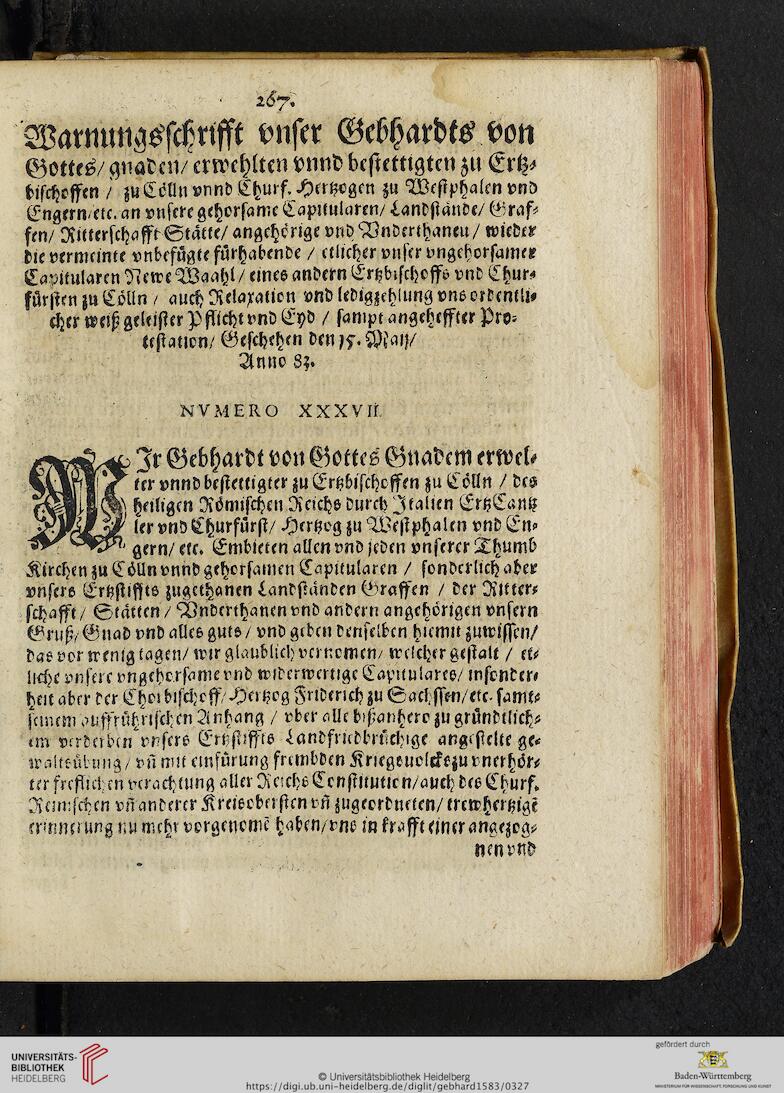 267.
Warnungsschrifft vnser Gebhardts von
Gottes/ gnaden/ erwehlten vnnd bestettigten zu Ertz⸗
bischoffen / zu Cölln vnnd Churf. Hertzogen zu Westphalen vnd
Engern/etc. an vnsere gehorsame Capitularen/ Landstände/ Graf⸗
fen/ Ritterschafft Stätte/ angehörige vnd Vnderthanen/ wieder
die vermeinte vnbefügte fürhabende / etlicher vnser vngehorsamer
Capitularen Newe Waahl / eines andern Ertzbischoffs vnd Chur⸗
fürsten zu Cölln / auch Relaxation vnd ledigzehlung vns ordentli⸗
cher weiß geleister Pflicht vnd Eyd / sampt angeheffter Pro⸗
testation/ Geschehen den 15. Maij/
Anno 83.
NVMERO XXXVII.
WIr Gebhardt von Gottes Gnadem erwel⸗
ter vnnd bestettigter zu Ertzbischoffen zu Cölln / des
heiligen Römischen Reichs durch Italien ErtzCantz
ler vnd Churfürst/ Hertzog zu Westphalen vnd En⸗
gern/ etc. Embieten allen vnd jeden vnserer Thumb
Kirchen zu Cölln vnnd gehorsamen Capitularen / sonderlich aber
vnsers Ertzstiffts zugethanen Landständen Graffen / der Ritter⸗
schafft / Stätten / Vnderthanen vnd andern angehörigen vnsern
Gruß/ Gnad vnd alles guts / vnd geben denselben hiemit zuwissen/
das vor wenig tagen/ wir glaublich vernomen/ welcher gestalt / et⸗
liche vnsere vngehorsame vnd widerwertige Capitulares/ insonder⸗
heit aber der Chorbischoff/ Hertzog Friderich zu Sachssen/etc. samt⸗
seinem auffrührischen Anhang / vber alle bißanhero zu gründtlich⸗
em verderben vnsers Ertzstiffts Landfriedbrüchige angestelte ge⸗
waltsübung / vñ mit einfürung frembden Kriegsuolcks zu vnerhör⸗
ter freflichen verachtung aller Reichs Constitution/ auch des Churf.
Reinischen vñ anderer Kreisobersten vñ zugeordneten/ trewhertzigẽ
erinnerung nu mehr vorgenomẽ haben/ vns in krafft einer angezog⸗
nen vnd
UNIVERSITÄTS-
BIBLIOTHEK
HEIDELBERG
© Universitätsbibliothek Heidelberg
https://digi.ub.uni-heidelberg.de/diglit/gebhard1583/0327
gefördert durch
Baden-Württemberg
MINISTERIUM FÜR WISSENSCHAFT, FORSCHUNG UND KUNST